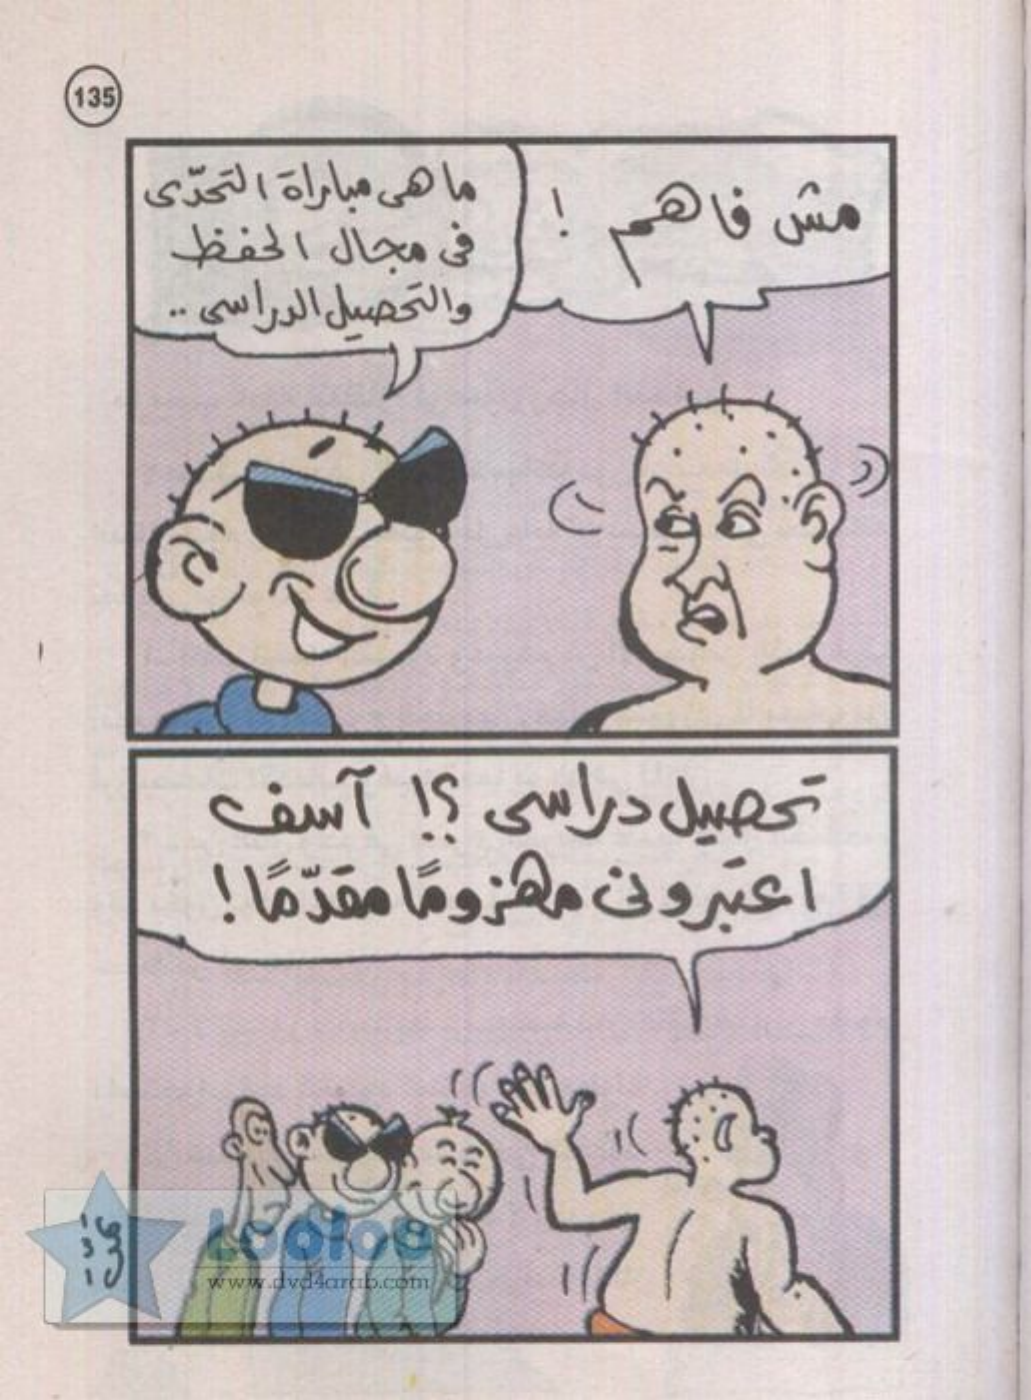 135
مش فاهم !
ما هى مباراة التحدّى
فى مجال الحفظ
والتحصيل الدراسى ..
تحصيل دراسى ؟! آسف
اعتبرونى مهزومًا مقدّمًا !
Looloo
www.dvd4arab.com